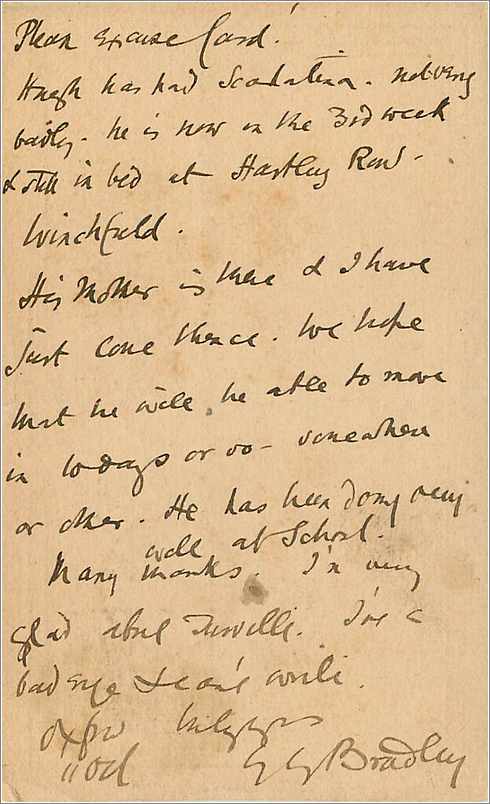 Please excuse Card!
Hugh has had Scarlatina. not very
badly. he is now in the 3rd week
& still in bed at Hartley Row.
Winchfield.
His Mother is there & I have
just come thence. We hope
that he will be able to move
in 10 days or so - somewhere
or other. He has been doing very
well at School.
Many thanks. I'm very
glad about Turville. I've a
bad eye & can't write.
Oxford truly yrs
11 Oct G G Bradley